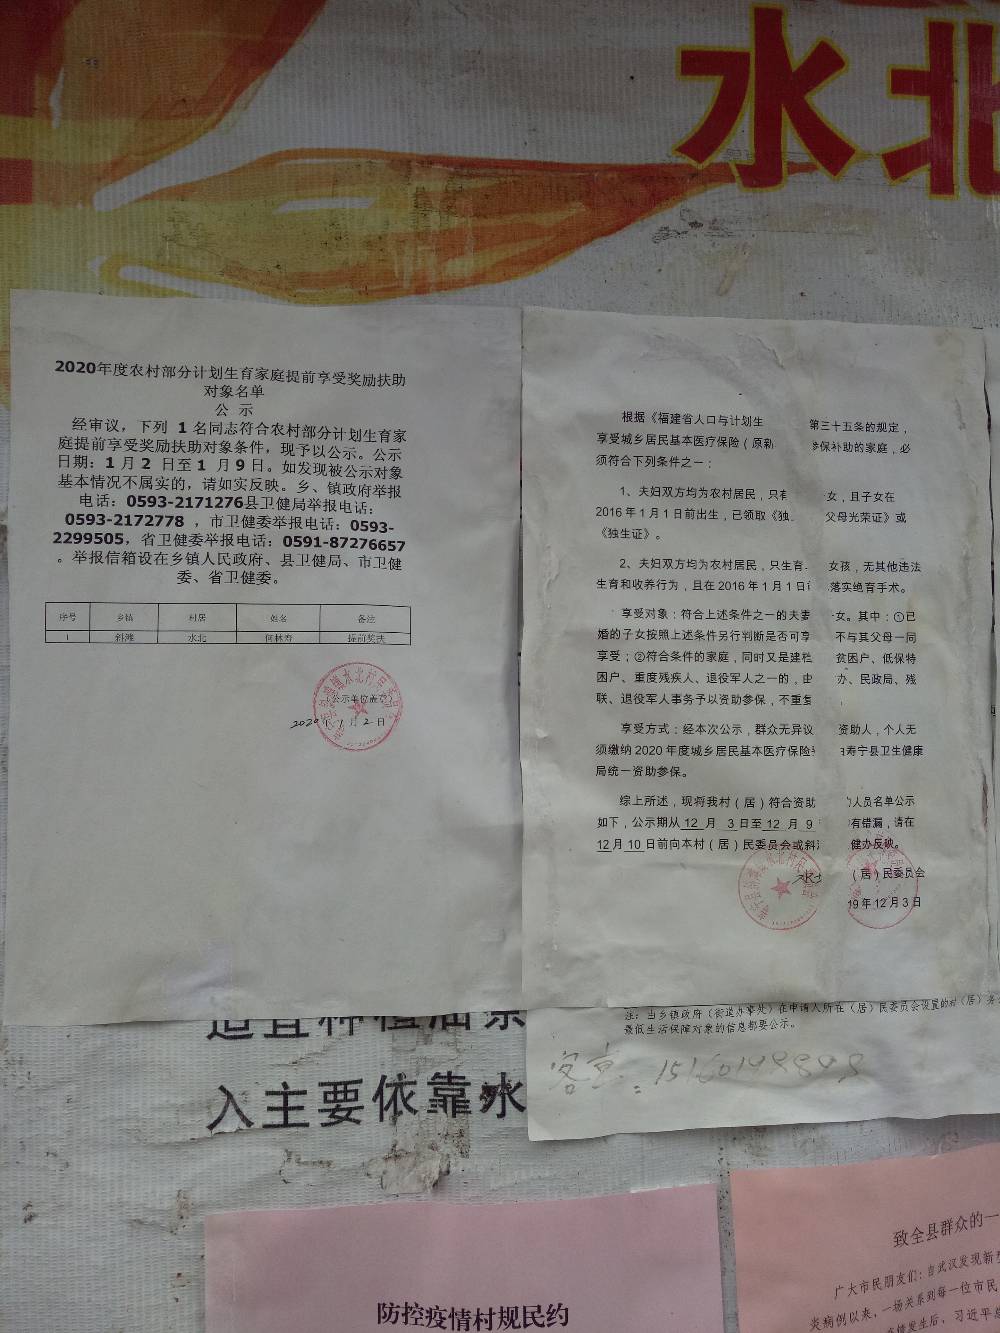 水北
2020年度农村部分计划生育家庭提前享受奖励扶助
对象名单
公 示
经审议，下列 1 名同志符合农村部分计划生育家
庭提前享受奖励扶助对象条件，现予以公示。公示
日期：1 月 2 日至 1 月 9 日。如发现被公示对象
基本情况不属实的，请如实反映。乡、镇政府举报
电话：0593-2171276县卫健局举报电话：
0593-2172778 ，市卫健委举报电话：0593-
2299505，省卫健委举报电话：0591-87276657
。举报信箱设在乡镇人民政府、县卫健局、市卫健
委、省卫健委。
序号 乡镇 村居 姓名 备注
1 斜滩 水北 何林寿 提前奖扶
（公示单位盖章）
2020年 1 月 2 日
根据《福建省人口与计划生 第三十五条的规定，
享受城乡居民基本医疗保险（原新 参保补助的家庭，必
须符合下列条件之一：
1、夫妇双方均为农村居民，只有 女，且子女在
2016 年 1 月 1 日前出生，已领取《独 父母光荣证》或
《独生证》。
2、夫妇双方均为农村居民，只生育 女孩，无其他违法
生育和收养行为，且在 2016 年 1 月 1 日 落实绝育手术。
享受对象：符合上述条件之一的夫妻 女。其中：①已
婚的子女按照上述条件另行判断是否可享 不与其父母一同
享受；②符合条件的家庭，同时又是建档 贫困户、低保特
困户、重度残疾人、退役军人之一的，由 办、民政局、残
联、退役军人事务予以资助参保，不重复
享受方式：经本次公示，群众无异议 资助人，个人无
须缴纳 2020 年度城乡居民基本医疗保险 寿宁县卫生健康
局统一资助参保。
综上所述，现将我村（居）符合资助 的人员名单公示
如下，公示期从 12 月 3 日至 12 月 9 有错漏，请在
12 月 10 日前向本村（居）民委员会或斜 健办反映。
水北 （居）民委员会
19 年 12 月 3 日
注：当乡镇政府（街道办事处）在申请人所在（居）民委员会设置的村（居）务
最低生活保障对象的信息都要公示。
入主要依靠水
防控疫情村规民约
致全县群众的一
广大市民朋友们：自武汉发现新
炎病例以来，一场关系到每一位市民
情发生后，习近平总